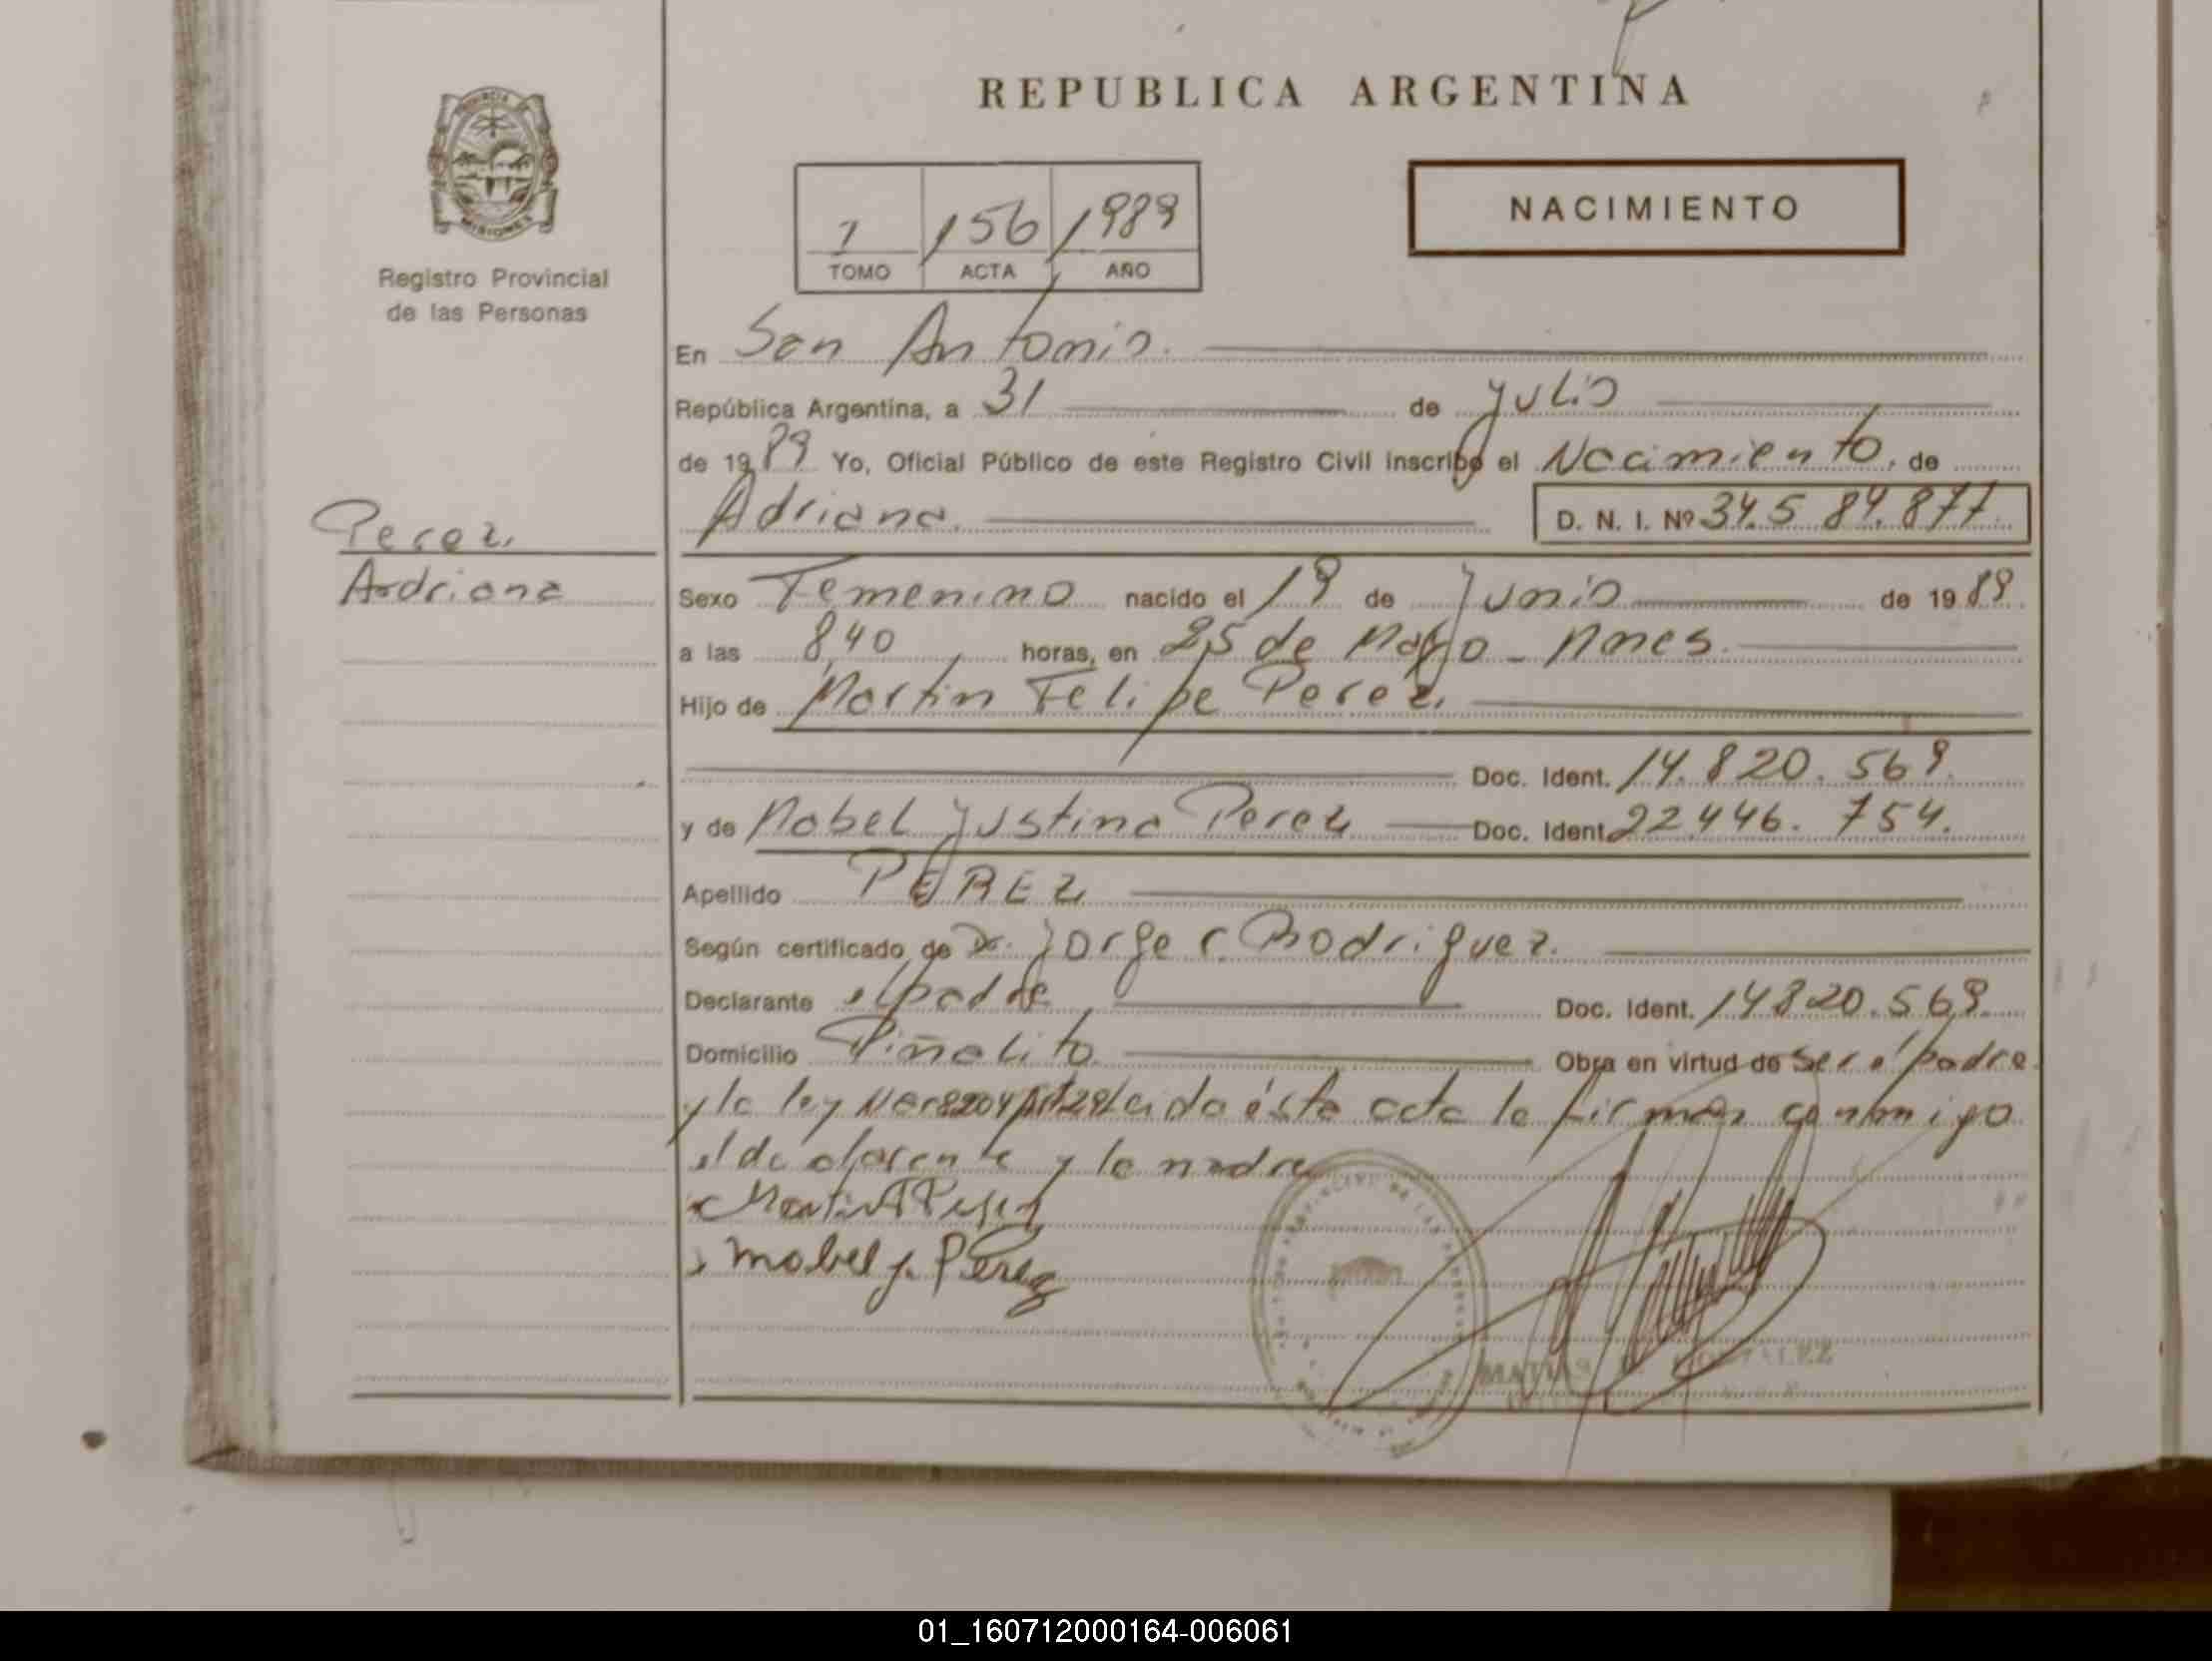 REPUBLICA ARGENTINA
PROVINCIA
MISIONES
Registro Provincial
de las Personas
1 156 1989
TOMO ACTA AÑO
NACIMIENTO
En San Antonio.
República Argentina, a 31 de Julio
de 1989 Yo, Oficial Público de este Registro Civil inscribo el Nacimiento, de
Adriana. D. N. I. Nº 34.5 84.877
Perez,
Adriana
Sexo Femenino nacido el 19 de Junio de 1989
a las 8,40 horas, en 25 de Mayo - Mnes.
Hijo de Martin Felipe Perez,
Doc. Ident. 14.820.569.
y de Mabel Justina Perez Doc. Ident. 22446.754.
Apellido PEREZ
Según certificado de Dr. Jorge C. Rodriguez.
Declarante el padre Doc. Ident. 14820.569.
Domicilio Piñalito Obra en virtud de ser el padre
y la ley 18204 Art 29 Leida ésta acta la firman conmigo
el declarante y la madre
Martin F Perez
Mabel J. Pérez
MATIAS GONZALEZ
01_160712000164-006061